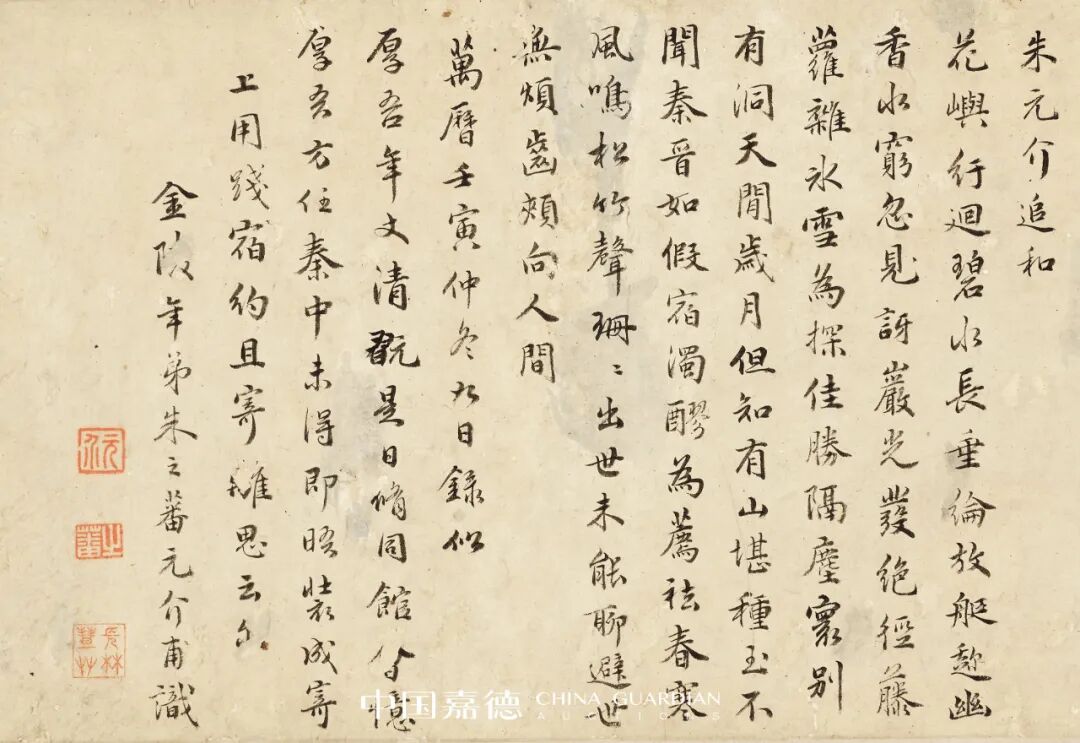 朱元介追和
花嶼行迴碧水長垂綸放艇趂幽
香水窮忽見訝巖光發絶徑藤
蘿雜氷雪為探佳勝隔塵寰別
有洞天閒歲月但知有山堪種玉不
聞秦晉如假宿濁醪為薦祛春寒
風鳴松竹聲珊〻出世未能聊避世
無煩齒頰向人間
萬曆壬寅仲冬九日錄似
厚吾年丈清翫是日脩同館 憶
厚吾方住秦中未得即晤裝成寄
上用踐宿約且寄離思云尒
金陵年弟朱之蕃元介甫識
元介
之蕃
中国嘉德 CHINA GUARDIAN
AUCTIONS